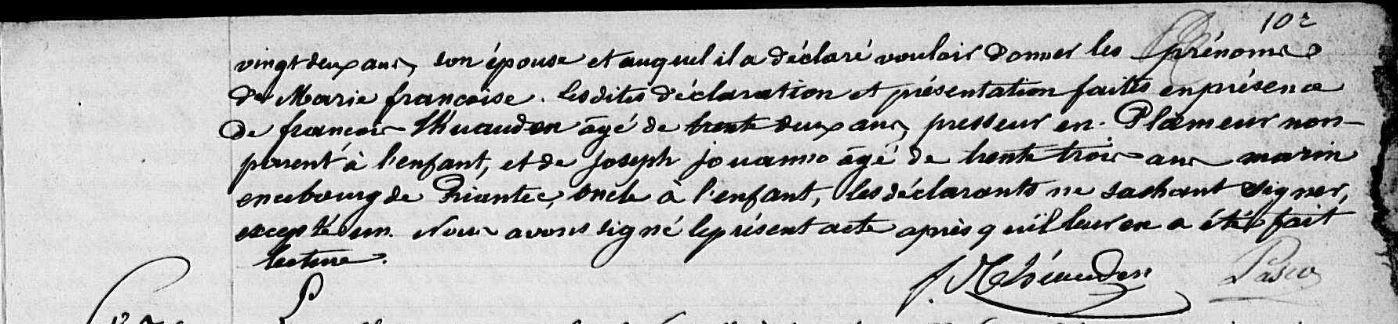 102
vingt deux ans, son épouse et auquel il a déclaré vouloir donner les prénoms
de Marie françoise. Lesdites déclaration et présentation faites en présence
de françois Thuaudon âgé de trente deux ans, presseur en Plœmeur non-
parent à l'enfant, et de Joseph jouanno âgé de trente trois ans marin
en ce bourg de Riantec, oncle à l'enfant, les déclarants ne sachant signer,
excepté un. Nous avons signé le présent acte après qu'il leur en a été fait
lecture.